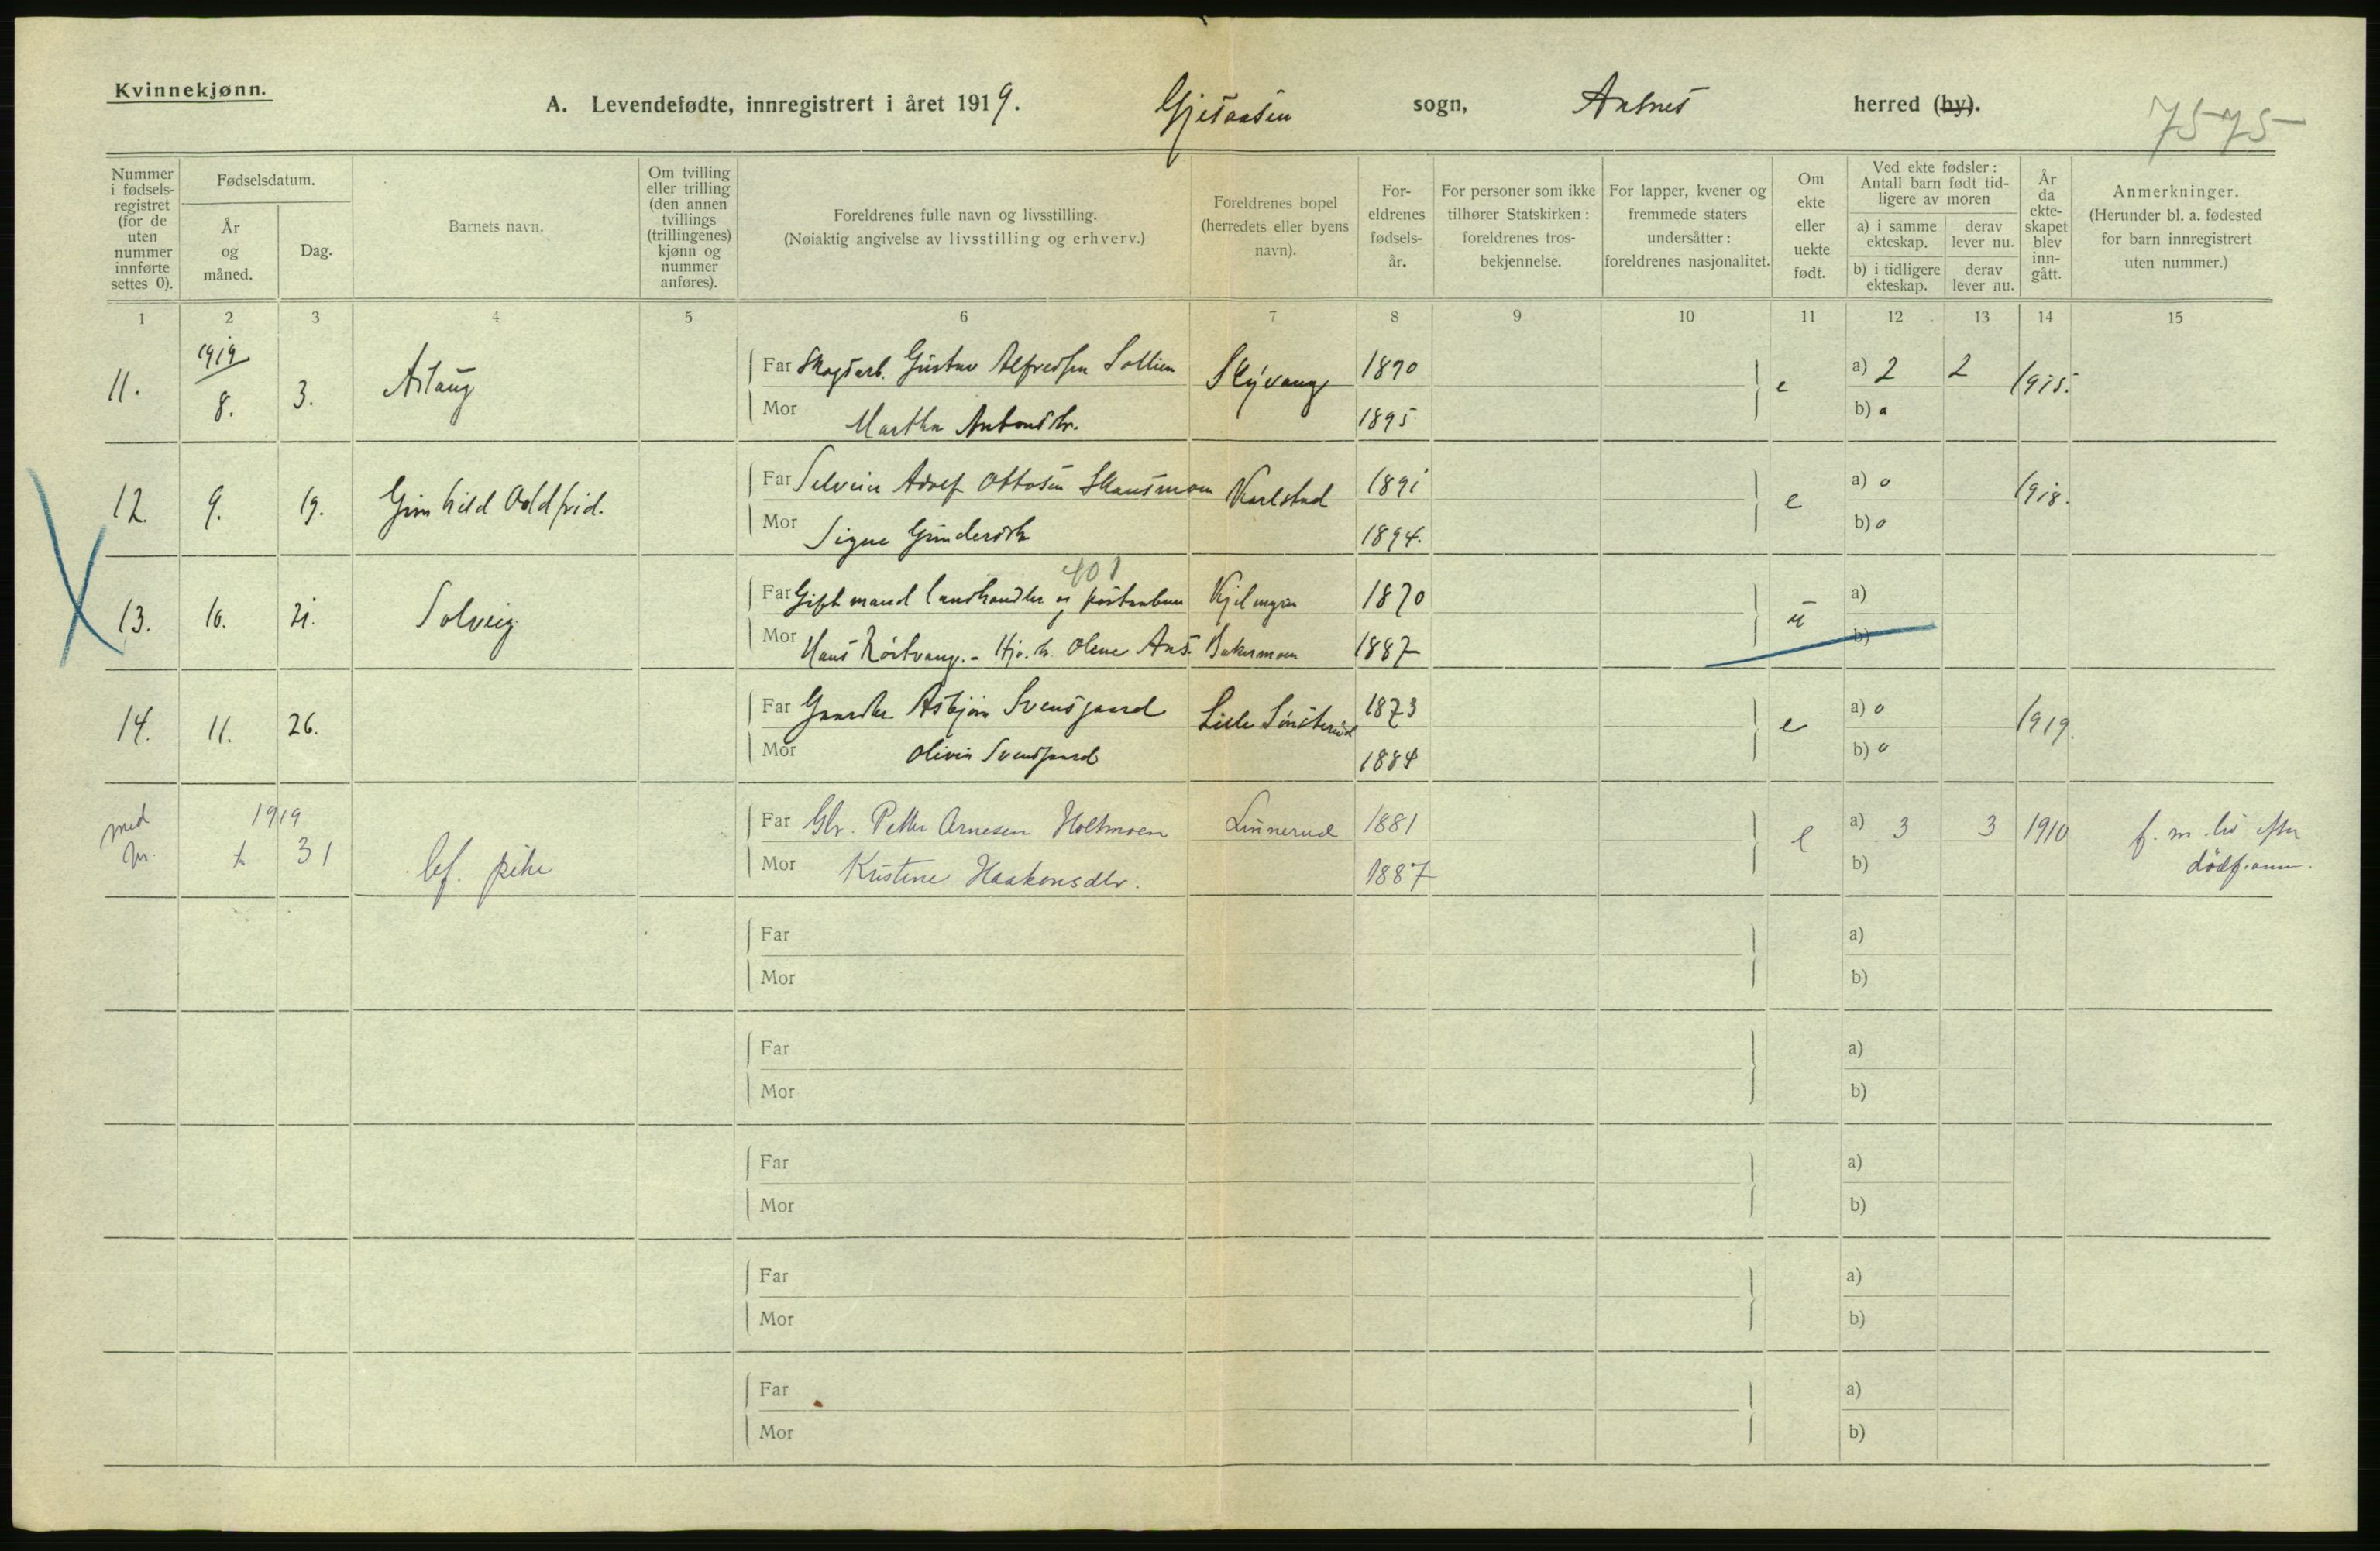 Kvinnekjønn.
A. Levendefødte, innregistrert i året 1919. Gjesaasen sogn, Aasnes herred (by).
7575
Nummer i fødselsregistret (for de uten nummer innførte settes 0).
Fødselsdatum.
År og måned.
Dag.
Barnets navn.
Om tvilling eller trilling (den annen tvillings (trillingenes) kjønn og nummer anføres).
Foreldrenes fulle navn og livsstilling.
(Nøiaktig angivelse av livsstilling og erhverv.)
Foreldrenes bopel (herredets eller byens navn).
Foreldrenes fødselsår.
For personer som ikke tilhører Statskirken: foreldrenes trosbekjennelse.
For lapper, kvener og fremmede staters undersåtter: foreldrenes nasjonalitet.
Om ekte eller uekte født.
Ved ekte fødsler: Antall barn født tidligere av moren
a) i samme ekteskap.
derav lever nu.
b) i tidligere ekteskap.
derav lever nu.
År da ekteskapet blev inngått.
Anmerkninger.
(Herunder bl. a. fødested for barn innregistrert uten nummer.)
1 2 3 4 5 6 7 8 9 10 11 12 13 14 15
11. 1919 8. 3. Aslaug Far Skogsarb. Gustav Alfredsen Sollien Skyvang 1890 e a) 2 2 1915.
Mor Martha Antonsdtr. 1895 b) o
12. 9. 19. Gunhild Oddfrid. Far Adolf Ottosen Karlstad 1891 e a) o 1918.
Mor Signe Gundersdtr 1894. b) o
401
13. 10. 21. Solveig Far Gift mand landhandler og 1870 u a)
Mor Hans - Olene Ans. 1887 b)
14. 11. 26. Far Asbjørn Svensgaard Lille Sønsterud 1873 e a) o 1919.
Mor Olivia Svensgaard 1884 b) o
med nr. 1919 31 lef. pike Far Gbr. Petter Arnesen Holtmoen Linnerud 1881 e a) 3 3 1910 f. m. liv efter
Mor Kristine Haakonsdtr. 1887 b) dødf.
Far a)
Mor b)
Far a)
Mor b)
Far a)
Mor b)
Far a)
Mor b)
Far a)
Mor b)